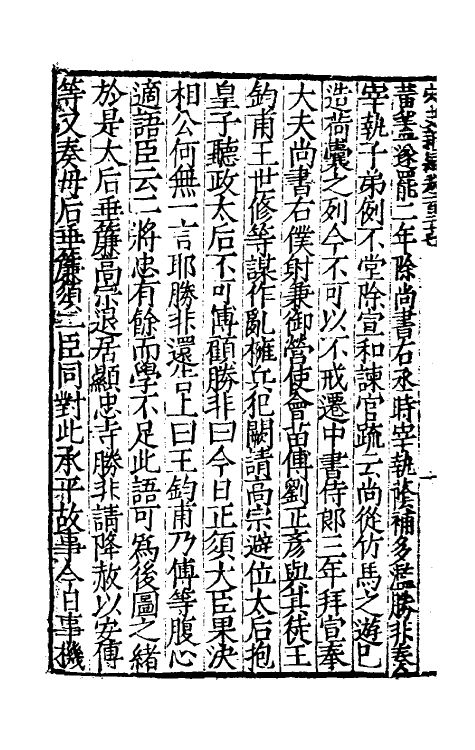 宋史新編卷一百二十七
黃葢遂罷二年除尚書右丞時宰執蔭補多濫勝非奏今
宰執子弟例不堂除宣和諫官疏云尚從竹馬之遊已
造荷囊之列今不可以不戒遷中書侍郎三年拜宣奉
大夫尚書右僕射兼御營使會苗傅劉正彥與其徒王
鈞甫王世修等謀作亂擁兵犯闕請高宗避位太后抱
皇子聽政太后不可傅顧勝非曰今日正須大臣果決
相公何無一言耶勝非還告上曰王鈞甫乃傅等腹心
適語臣云二將忠有餘而學不足此語可爲後圖之緒
於是太后垂簾高宗退居顯忠寺勝非請降赦以安傅
等又奏母后垂簾須二臣同對此承平故事今日事機